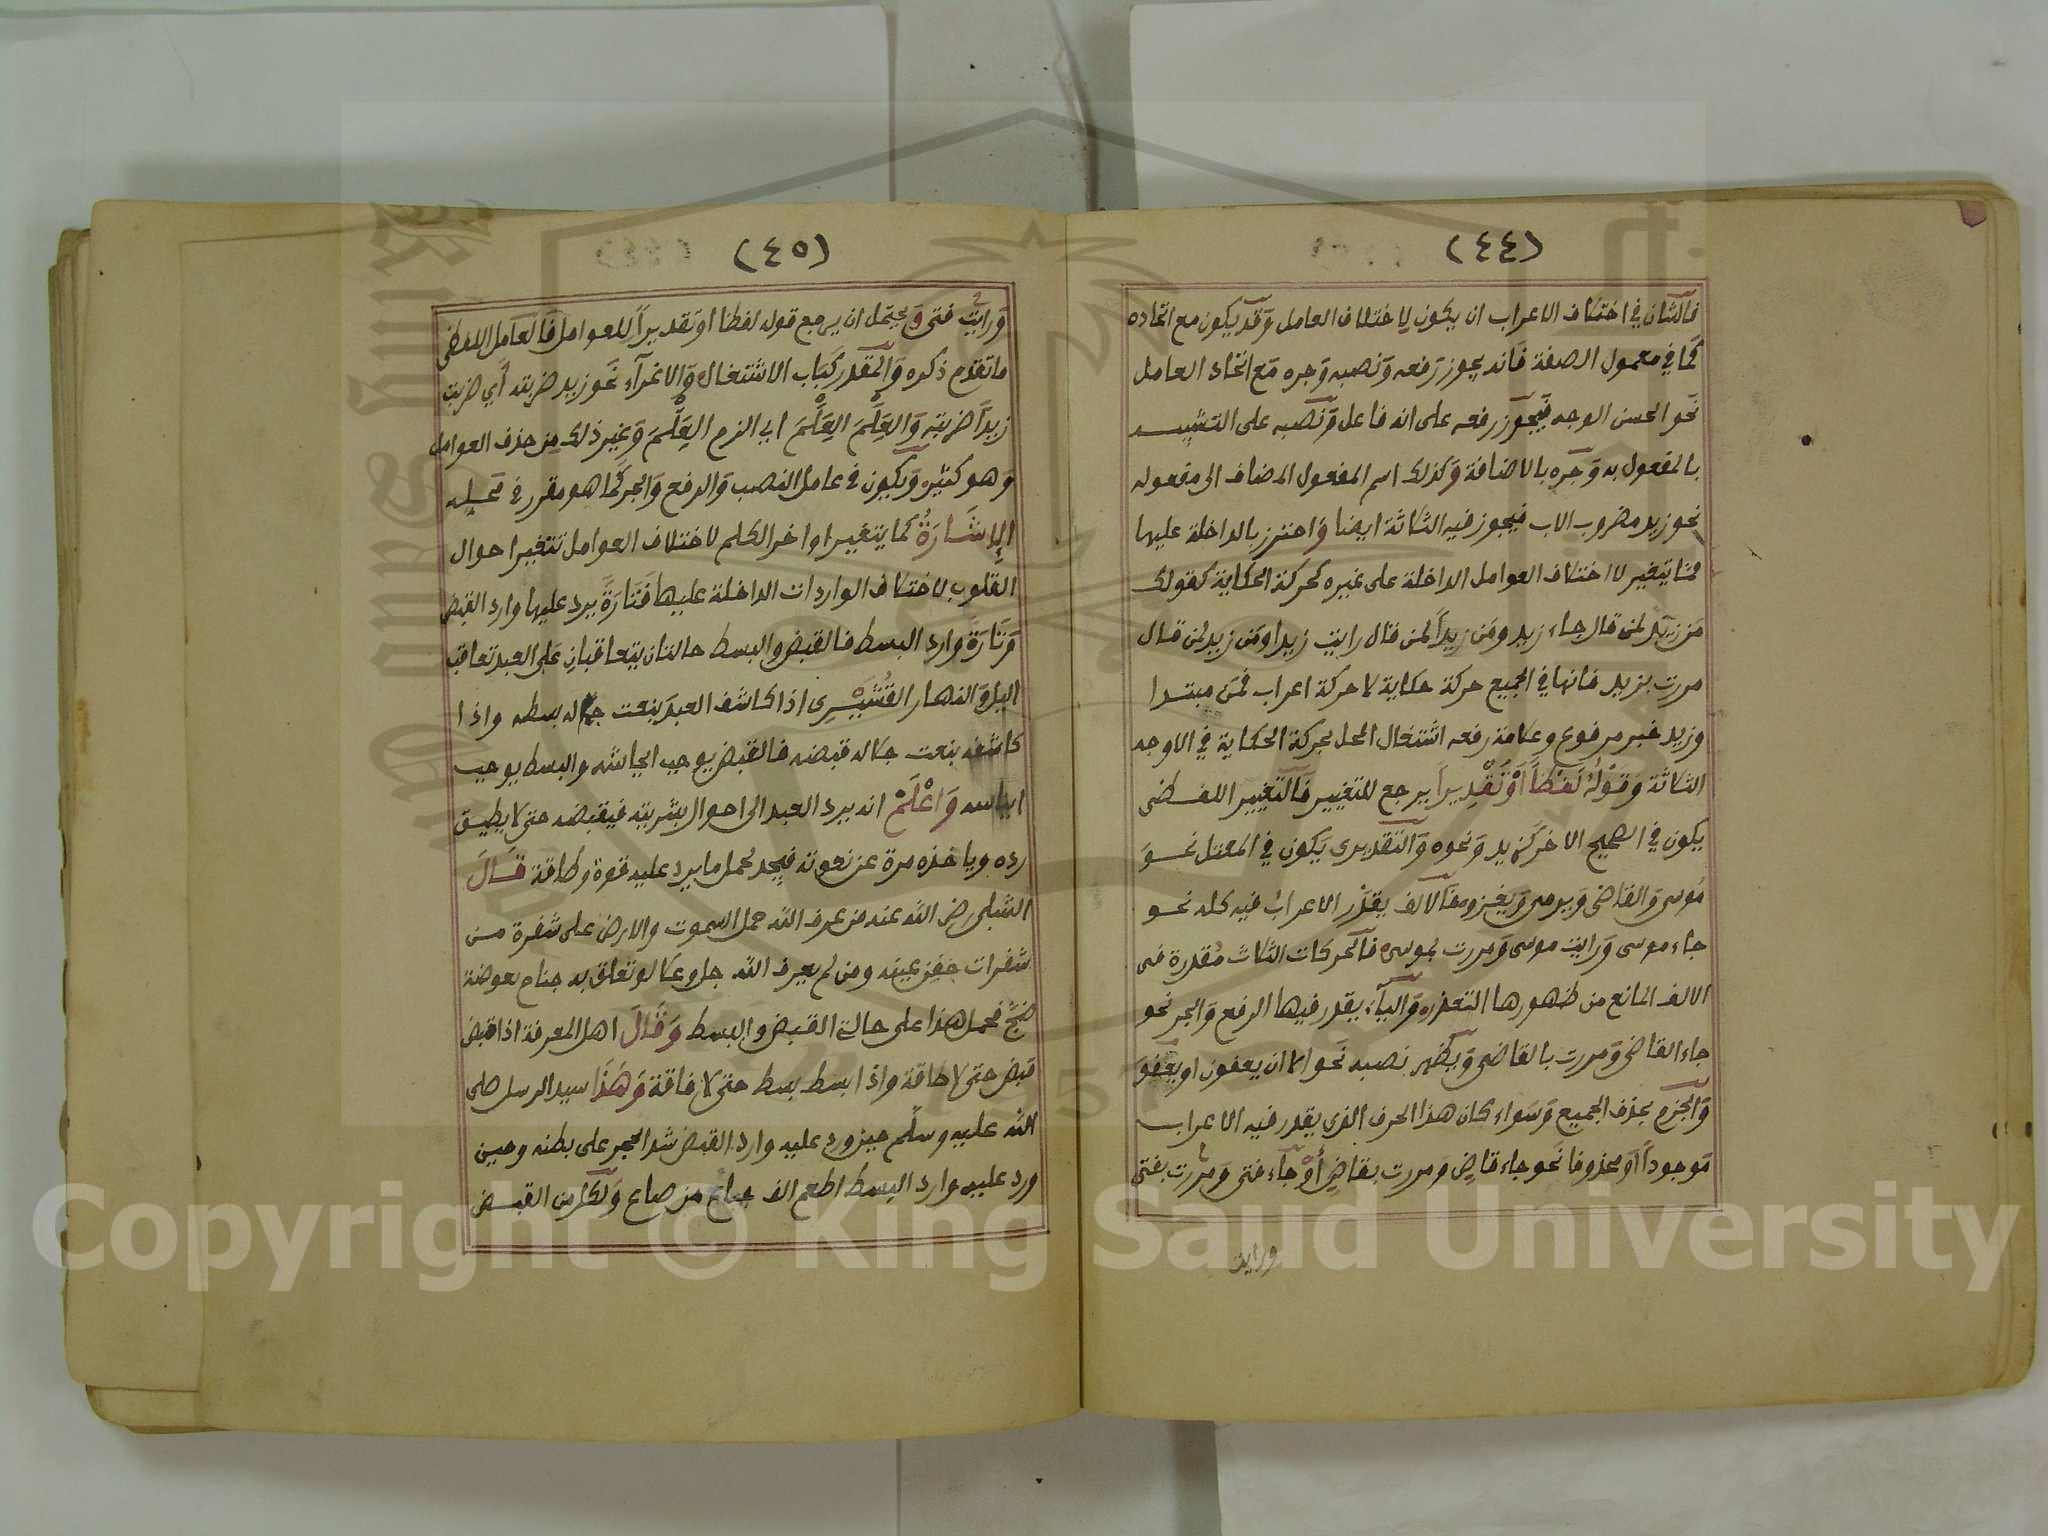 (٤٤)
فالشان في اختلاف الاعراب ان يكون لاختلاف العامل وقد يكون مع اتحاده
كما في معمول الصفة فانه يجوز رفعه ونصبه وجره مع اتحاد العامل
نحو الحسن الوجه فيجوز رفعه على انه فاعل ونصبه على التشبيه
بالمفعول به وجره بالاضافة وكذلك اسم المفعول المضاف الى مفعوله
نحو زيد مضروب الاب فيجوز فيه الثلاثة ايضا واحترز بالداخلة عليها
مما يتغير لاختلاف العوامل الداخلة على غيره كحركة الحكاية كقولك
مَن زيدٌ لمن قال جاء زيد ومَن زيداً لمن قال رايت زيدا ومَن زيدٍ لمن قال
مررت بزيد فانها في الجميع حركة حكاية لا حركة اعراب فمن مبتدا
وزيد خبر مرفوع وعلامة رفعه اشتغال المحل بحركة الحكاية في الاوجه
الثلاثة وقَوْلُهُ لَفْظاً أَوْ تَقْدِيراً يرجع للتغيير فالتغيير اللفظى
يكون في الصحيح الاخر كزيد ونحوه والتقديرى يكون في المعتل نحو
مُوسى والقاضى ويرمى ويغزو فالالف يقدَّر الاعراب فيه كله نحو
جاء موسى ورايت موسى ومررت بموسى فالحركات الثلاث مقدرة فى
الالف المانع من ظهورها التعذر والياء يقدر فيها الرفع والجر نحو
جاء القاضى ومررت بالقاضى ويظهر نصبه نحو الا ان يعفون او يعفوَ
والجزم بحذف الجميع وسواء كان هذا الحرف الذى يقدر فيه الاعراب
موجوداً او محذوفا نحو جاء قاضٍ ومررت بقاضٍ أوْ جاء فتى ومررت بفتى
ورايت
(٤٥)
ورايت فتى ويحتمل ان يرجع قوله لفظا او تقديراً للعوامل فالعامل اللفظى
ما تقدم ذكره والمقدر كباب الاشتغال والاغرآء نحو زيد ضربته أي ضربت
زيداً ضربته والعِلْمَ العِلْمَ اي الزم العِلْمَ وغير ذلك من حذف العوامل
وهو كثير ويكون في عامل النصب والرفع والجر كما هو مقرر في محله
الإِشَارَةُ كما يتغير اواخر الكلم لاختلاف العوامل تتغير احوال
القلوب لاختلاف الواردات الداخلة عليها فَتَارَةً يرد عليها وارد القبض
وتَارَةً وارد البسط فالقبض والبسط حالتان يتعاقبان على العبد تعاقب
اليل والنهار القُشَيْرِى اذا كاشف العبد بنعت جماله بسطه واذا
كاشفه بنعت جلاله قبضه فالقبض يوجب ايحاشه والبسط يوجب
ايناسه وَاعْلَمْ انه يرد العبد الى احوال بشريته فيقبضه حتى لا يطيق
رده وياخذه مرة عن نعوته فيجد لحمل ما يرد عليه قوة وطاقة قَالَ
الشبلى رضى الله عنه من عرف الله حمل السموت والارض على شفرة من
شفرات جفن عينه ومن لم يعرف الله جل وعلا لو تعلق به جناح بعوضة
ضجّ فحمل هذا على حالة القبض والبسط وَقَالَ اهل المعرفة اذا قبض
قبض حتى لا طاقة واذا ابسط بسط حتى لا فاقة وَهَذَا سيد الرسل صلى
الله عليه وسلم حين ورد عليه وارد القبض شد الحجر على بطنه وحين
ورد عليه وارد البسط اطعم الف من صاع ولكل من القبض
Copyright © King Saud University
King Saud University
1957